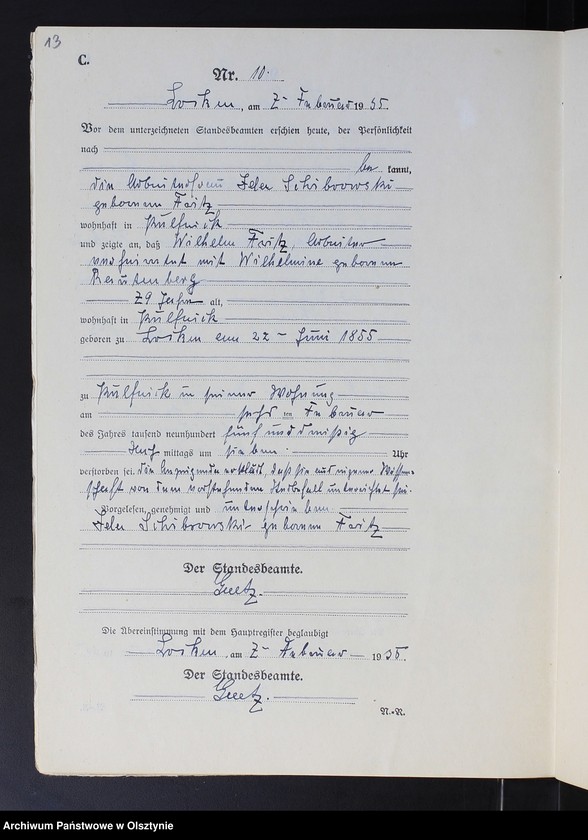 13
C.
Nr. 10.
Losken, am 7. Februar 1935.
Vor dem unterzeichneten Standesbeamten erschien heute, der Persönlichkeit
nach
be kannt,
die Arbeiterfrau
geborene Fritz
wohnhaft in Külfnick
und zeigte an, daß Wilhelm Fritz, Arbeiter
verheiratet mit Wilhelmine geborene
79 Jahre alt,
wohnhaft in Külfnick
geboren zu Losken am 22. Juni 1855
zu Külfnick in seiner Wohnung
am sechs ten Februar
des Jahres tausend neunhundert fünfunddreißig
Nach mittags um sieben Uhr
verstorben sei. Die Anzeigende erklärt, daß sie aus eigener Wissen-
schaft von dem vorstehenden Sterbefall unterrichtet sei.
Vorgelesen, genehmigt und unterschrieben
geborene Fritz
Der Standesbeamte.
Die Übereinstimmung mit dem Hauptregister beglaubigt
Losken, am 7. Februar 1935.
Der Standesbeamte.
N.-R.
Archiwum Państwowe w Olsztynie